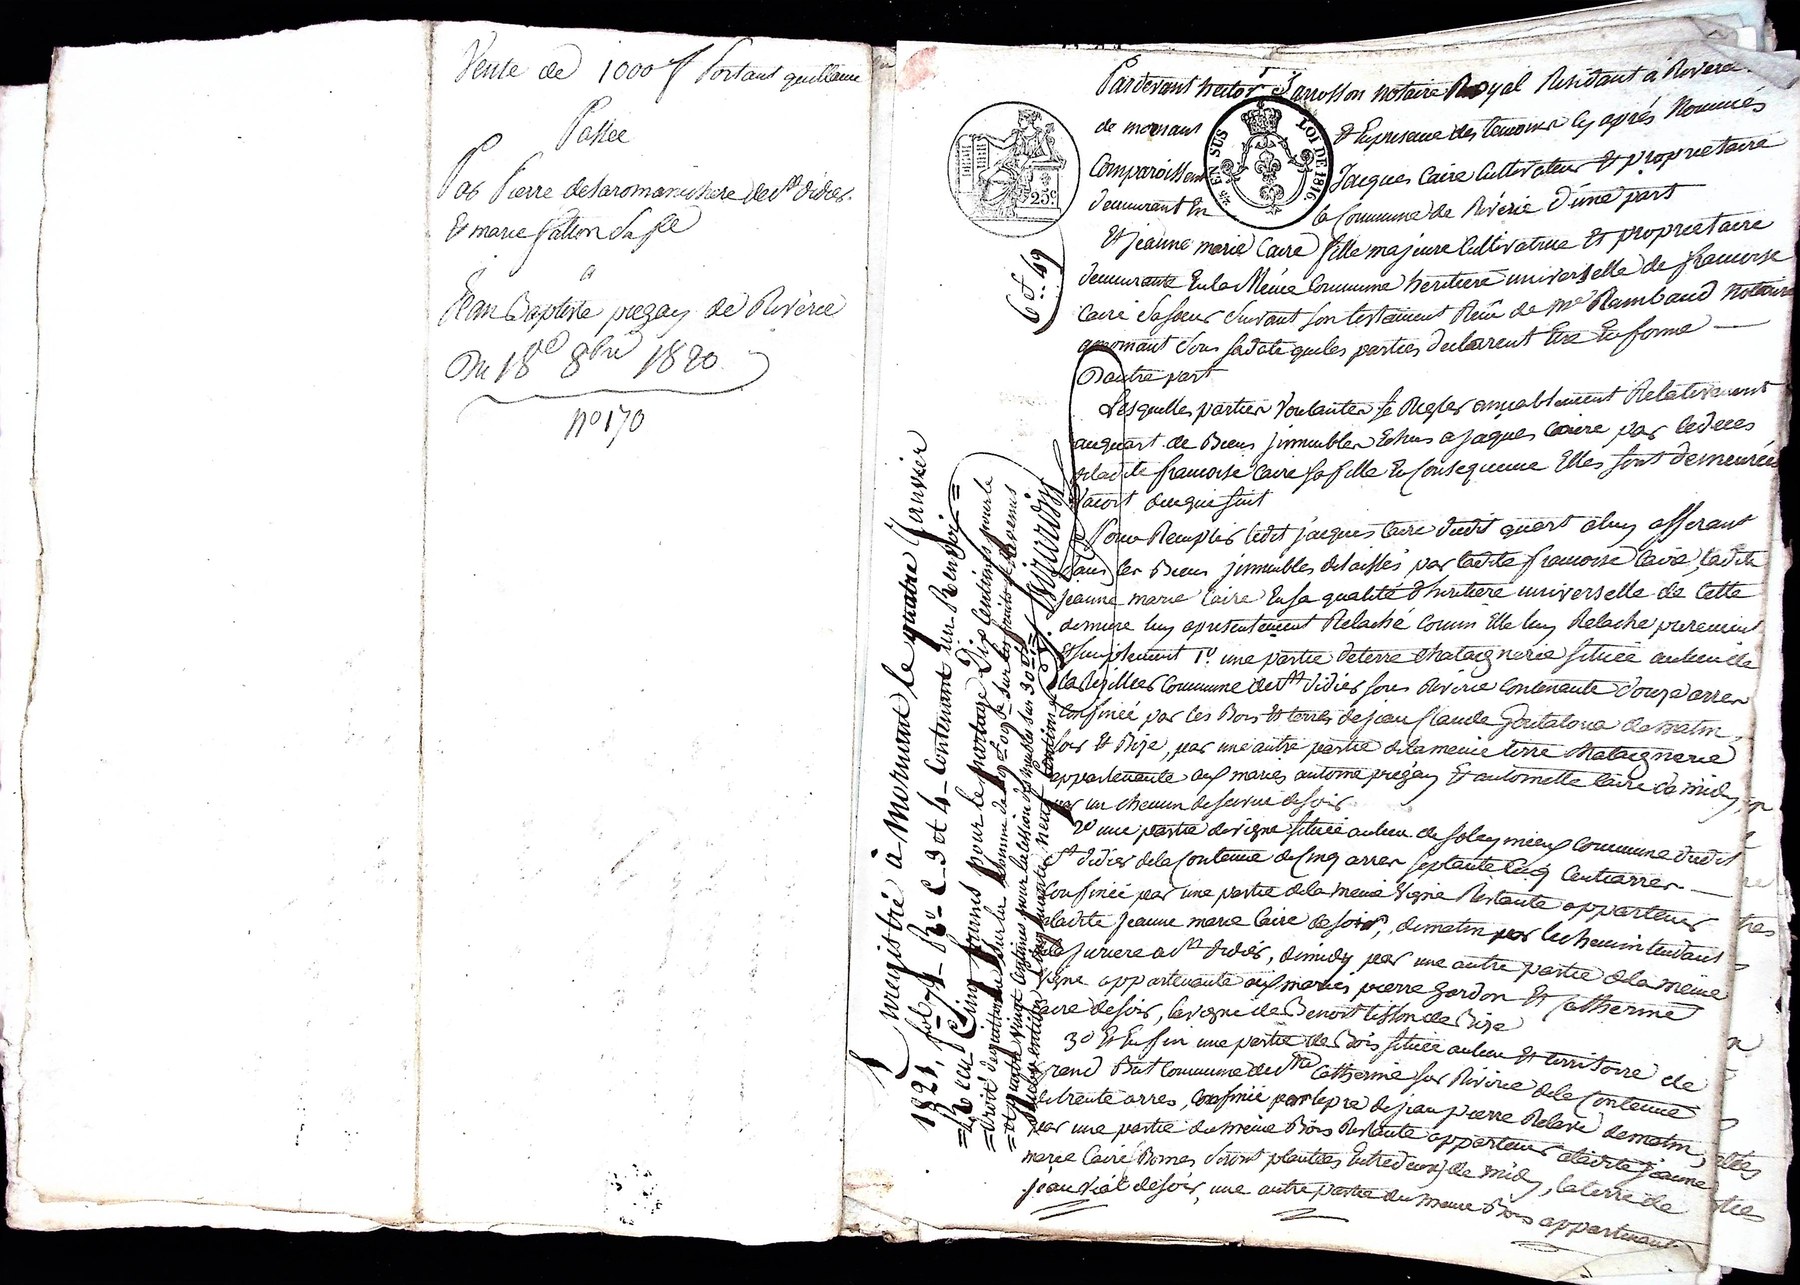 Vente de 1000 f portant quittance
Passée
Par Pierre delaromanichere de st didier
Et marie fatton sa fe
a
Jean Baptiste pregay de Riverie
Du 18e 8bre 1820
No 170
Pardevant hector Sarrosson notaire Royal Residant à Riverie
de mornant Et En presence des temoins cy après Nommés
Comparoissent Jacques Caire Cultivateur Et propriétaire
demeurant En la Commune de Riverie d'une part
Et jeanne marie Caire fille majeure Cultivatrice Et propriétaire
demeurante En la Même Commune heritiere universelle de francoise
Caire Sa soeur Suivant Son testament Reçu de me Rambaud notaire
a mornant dont sa date que les parties declarent Etre En forme
D'autre part
Lesquelles parties Voulantes se Regler amiablement Relativement
au quart de Biens jimmeubles Echus a jaques Caire par le deces
de ladite francoise Caire sa fille En Consequence Elles sont demeurées
d'acort de ce qui suit
Pour Remplir ledit jacques Caire dudit quart a luy afferant
dans les Biens jimmeubles delaissés par ladite francoise Caire, ladite
jeanne marie Caire En sa qualité d'heritiere universelle de cette
derniere luy a presentement Relaché comm Elle luy Relache purement
Et simplement 1o une partie de terre chataignerie située au lieu de
Commune de st didier sous Riverie contenante douze arres
Confinée par les Bois Et terres de jean Claude de matin
soir Et Bize, par une autre partie de la meme terre chataignerie
appartenante aux mariés antoine pregay Et antoinette Caire a midy,
par un chemin de servie de soir
2o une partie de vigne située au lieu de soleymieux commune dudit
st didier de la Contenue de Cinq arres septante Cinq Centiarres
Confinée par une partie de la meme Vigne Restante appartenir
a ladite jeanne marie Caire de soir, de matin par le chemin tendant
de a st didier, de midy par une autre partie de la meme
Vigne appartenante aux mariés pierre Gardon Et Catherine
Caire de soir, la vigne de Benoit tisson de Bize
3o Et En fin une partie de Bois située au lieu Et territoire de
Grand But Commune de ste Catherine sur Riverie de la Contenue
de trente arres, Confinée par le pré de jean pierre Relave de matin,
par une partie du meme Bois Restante appartenir a ladite jeanne
marie Caire Bornes seront plantées Entre deux, de midy, la terre de
jean Vial de soir, une autre partie du meme Bois appartenant
EN SUS
LOI DE 1816
25c
6 f. 49
Enregistré à Mornant le quatre Janvier
1821, fol. 79 Ro C. 3 et 4 Contenant un Renvoi
Reçu Cinq francs pour le partage, Dix Centimes pour le
droit de quittance sur la somme de sur les fruits et revenus
et quatre vingt Centimes pour la cession de meubles sur 30